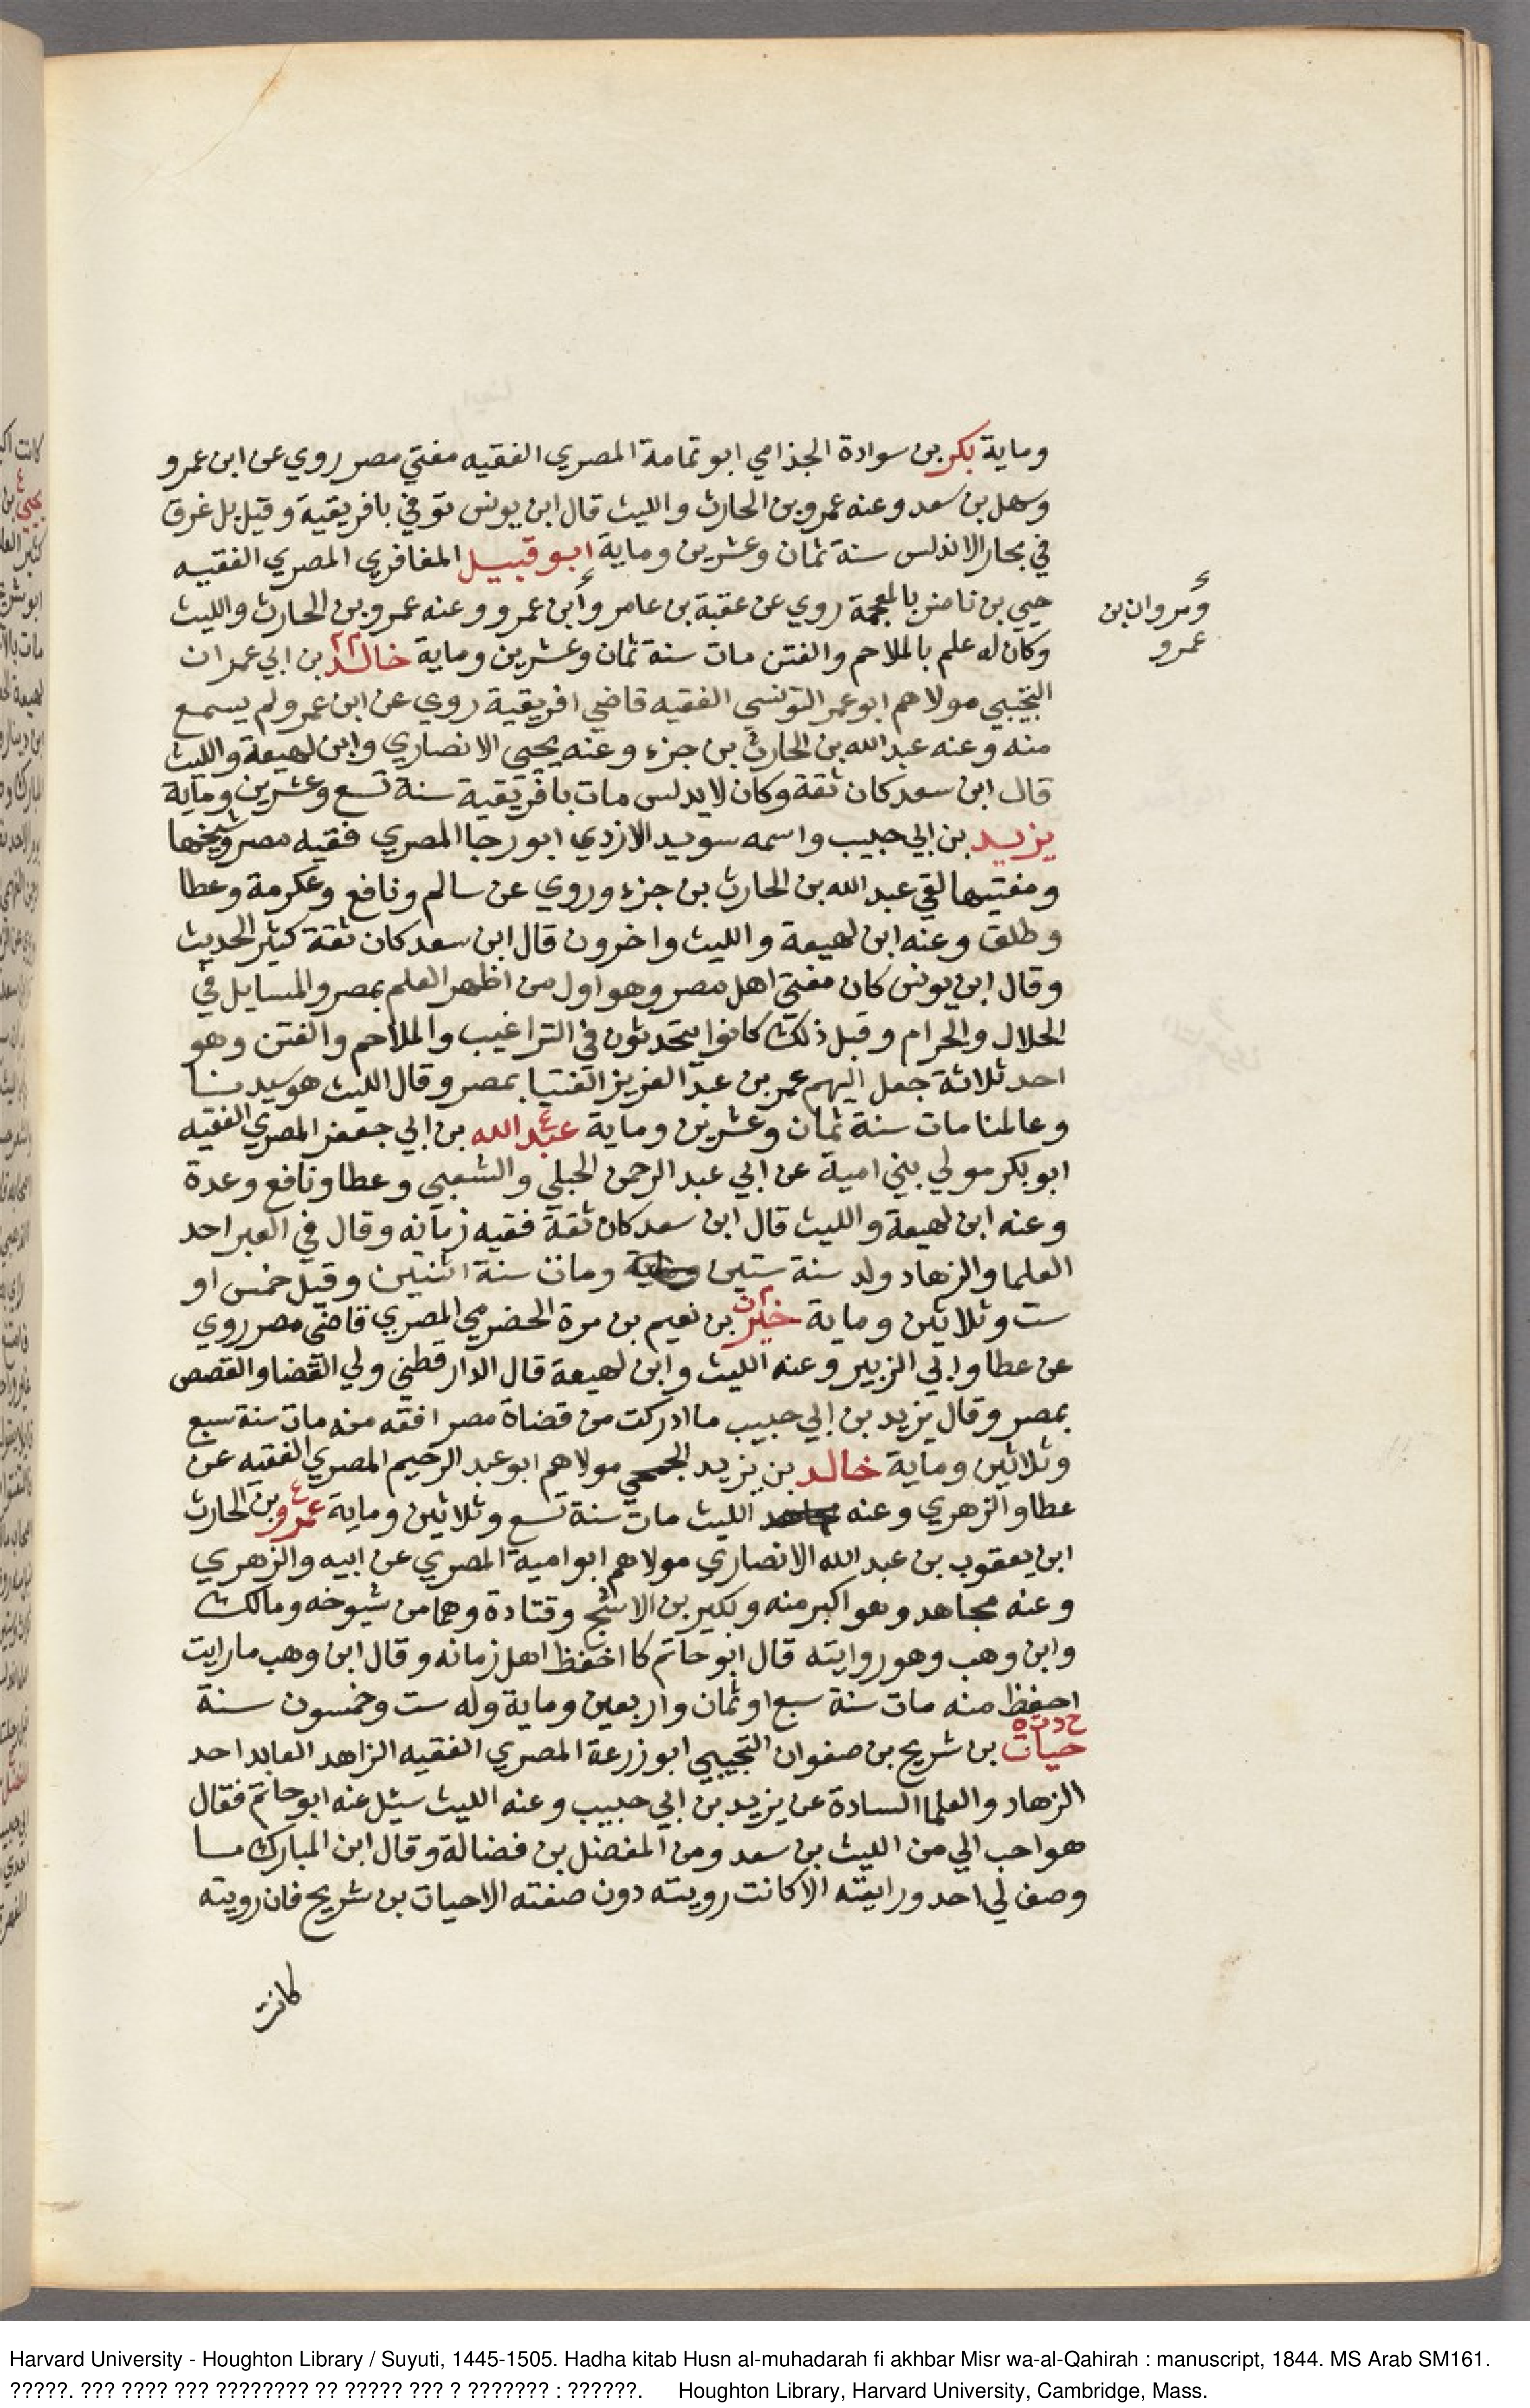 وماية بكر بن سوادة الجذامي ابو تمامة المصري الفقيه مفتي مصر روي عن ابن عمرو
وسهل بن سعد وعنه عمرو بن الحارث والليث قال ابن يونس توفي بافريقية وقيل بل غرق
في بحار الاندلس سنة ثمان وعشرين وماية ابو قبيل المغافري المصري الفقيه
حيي بن نامنر بالمعجمة روي عن عقبة بن عامر وابن عمرو وعنه عمرو بن الحارث والليث
ومروان بن
عمرو
وكان له علم بالملاحم والفتن مات سنة ثمان وعشرين وماية خالد بن ابي عمران
التجيبي مولاهم ابو عمر التونسي الفقيه قاضي افريقية روي عن ابن عمر ولم يسمع
منه وعنه عبد الله بن الحارث بن جزء وعنه يحيى الانصاري وابن لهيعة والليث
قال ابن سعد كان ثقة وكان لا يدلس مات بافريقية سنة تسع وعشرين وماية
يزيد بن ابي حبيب واسمه سويد الازدي ابو رجا المصري فقيه مصر وشيخها
ومفتيها لقي عبد الله بن الحارث بن جزء وروي عن سالم ونافع وعكرمة وعطا
وطلق وعنه ابن لهيعة والليث واخرون قال ابن سعد كان ثقة كثير الحديث
وقال ابن يونس كان مفتي اهل مصر وهو اول من اظهر العلم بمصر والمسايل في
الحلال والحرام وقبل ذلك كانوا يتحدثون في التراغيب والملاحم والفتن وهو
احد ثلاثة جعل اليهم عمر بن عبد العزيز الفتيا بمصر وقال الليث هو سيدنا
وعالمنا مات سنة ثمان وعشرين وماية عبد الله بن ابي جعفر المصري الفقيه
ابو بكر مولي بني امية عن ابي عبد الرحمن الحبلي والشعبي وعطا ونافع وعدة
وعنه ابن لهيعة والليث قال ابن سعد كان ثقة فقيه زمانه وقال في العبر احد
العلما والزهاد ولد سنة ستين ومات سنة اثنتين وقيل خمس او
ست وثلاثين وماية خير بن نعيم بن مرة الحضرمي المصري قاضي مصر روي
عن عطا وابي الزبير وعنه الليث وابن لهيعة قال الدارقطني ولي القضا والقصص
بمصر وقال يزيد بن ابي حبيب ما ادركت من قضاة مصر افقه منه مات سنة سبع
وثلاثين وماية خالد بن يزيد الجمحي مولاهم ابو عبد الرحيم المصري الفقيه عن
عطا والزهري وعنه الليث مات سنة تسع وثلاثين وماية عمرو بن الحارث
ابن يعقوب بن عبد الله الانصاري مولاهم ابو امية المصري عن ابيه والزهري
وعنه مجاهد وهو اكبر منه وبكير بن الاشج وقتادة وهما من شيوخه ومالك
وابن وهب وهو روايته قال ابو حاتم كا احفظ اهل زمانه وقال ابن وهب ما رايت
احفظ منه مات سنة سبع او ثمان واربعين وماية وله ست وخمسون سنة
حيات بن شريح بن صفوان التجيبي ابو زرعة المصري الفقيه الزاهد العابد احد
الزهاد والعلما السادة عن يزيد بن ابي حبيب وعنه الليث سيل عنه ابو حاتم فقال
هو احب الي من الليث بن سعد ومن المفضل بن فضالة وقال ابن المبارك ما
وصف لي احد ورايته الا كانت رويته دون صفته الا حيات بن شريح فان رويته
كانت
Harvard University - Houghton Library / Suyuti, 1445-1505. Hadha kitab Husn al-muhadarah fi akhbar Misr wa-al-Qahirah : manuscript, 1844. MS Arab SM161.
?????. ??? ???? ??? ???????? ?? ????? ??? ? ??????? : ??????. Houghton Library, Harvard University, Cambridge, Mass.